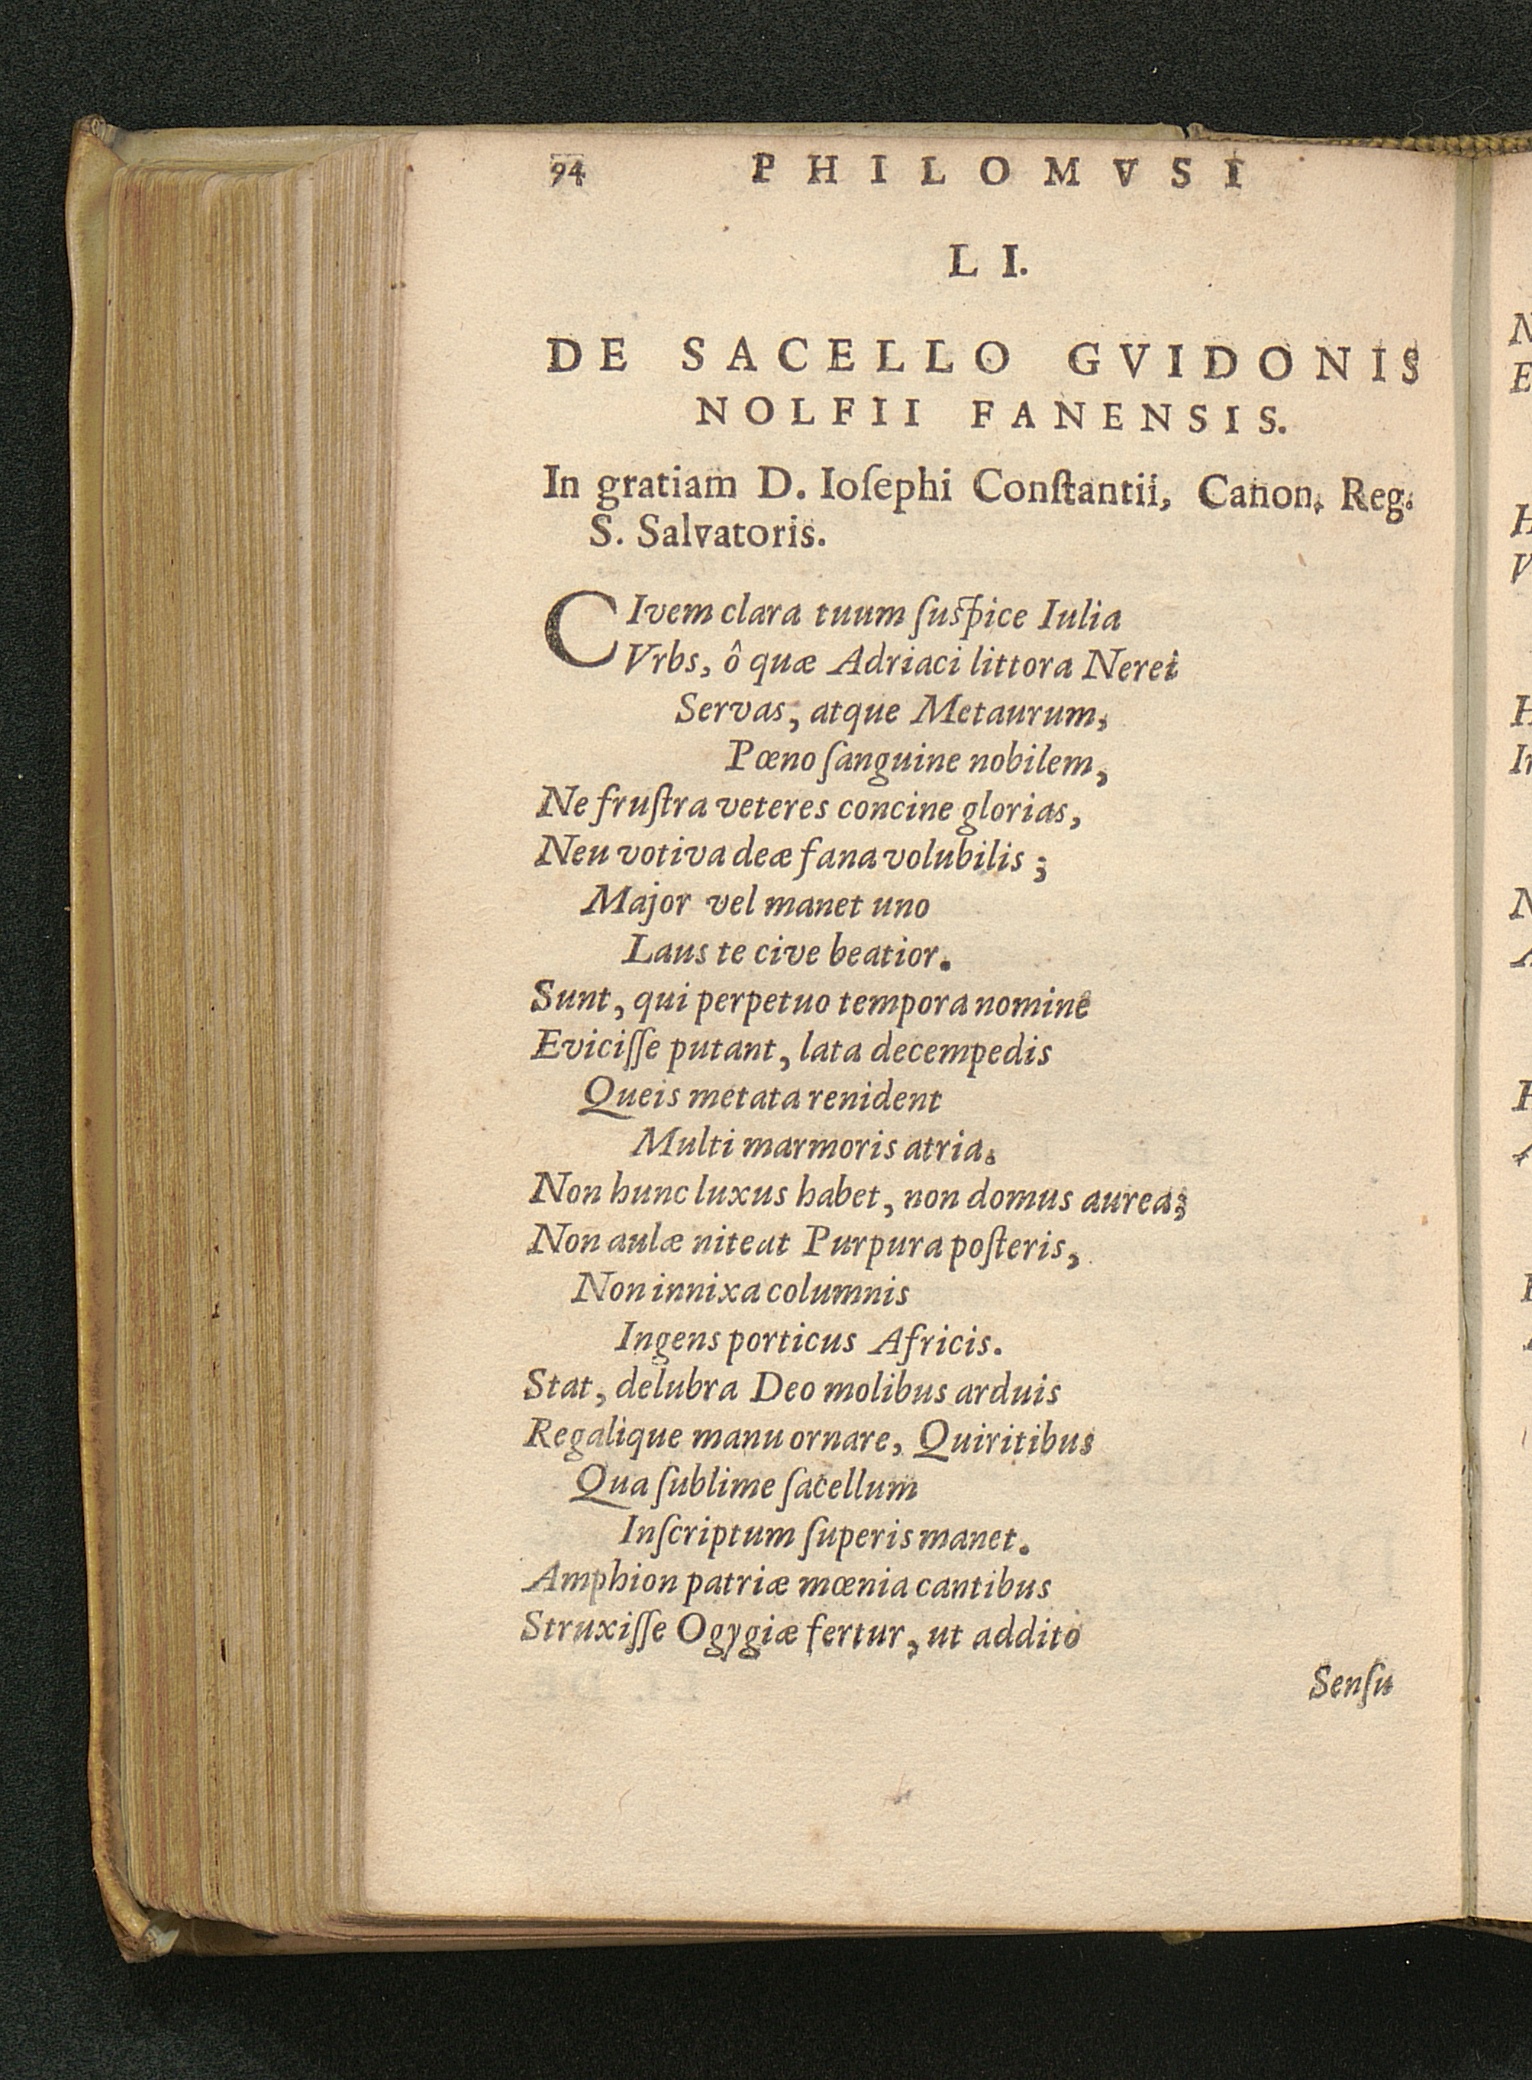 94 PHILOMVSI
LI.
DE SACELLO GVIDONIS
NOLFII FANENSIS.
In gratiam D. Ioſephi Conſtantii, Canon. Reg.
S. Salvatoris.
CIvem clara tuum ſuſpice Iulia
Vrbs, ô quæ Adriaci littora Nerei
Servas, atque Metaurum,
Pœno ſanguine nobilem,
Ne fruſtra veteres concine glorias,
Neu votiva deæ fana volubilis;
Major vel manet uno
Laus te cive beatior.
Sunt, qui perpetuo tempora nomine
Eviciſſe putant, lata decempedis
Queis metata renident
Multi marmoris atria.
Non hunc luxus habet, non domus aurea;
Non aulæ niteat Purpura poſteris,
Non innixa columnis
Ingens porticus Africis.
Stat, delubra Deo molibus arduis
Regalique manu ornare, Quiritibus
Qua ſublime ſacellum
Inſcriptum ſuperis manet.
Amphion patriæ mœnia cantibus
Struxiſſe Ogygiæ fertur, ut addito
Senſu